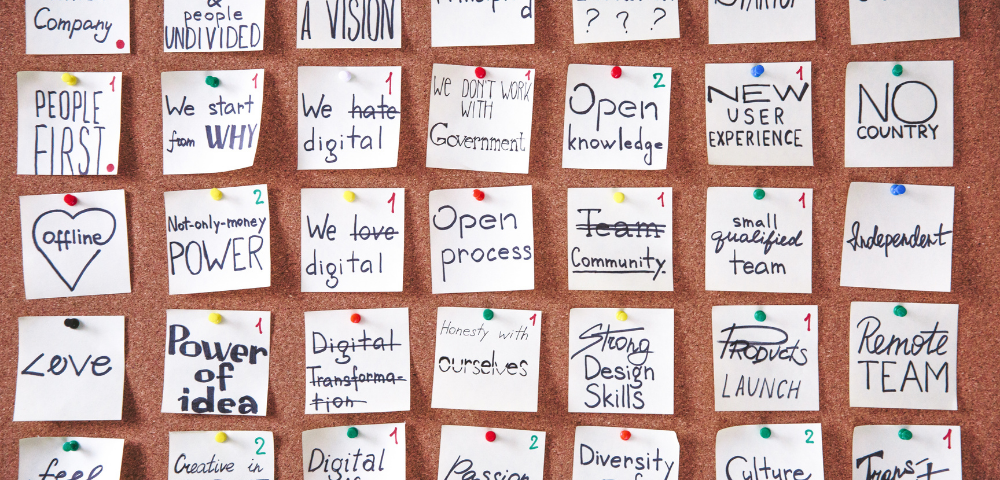 Company
&
people
UNDIVIDED
A VISION
d
? ? ?
1
PEOPLE
FIRST
1
We start
from WHY
1
We hate
digital
1
We DON'T WORK
WITH
Government
2
Open
knowledge
1
NEW
USER
EXPERIENCE
NO
COUNTRY
offline
2
Not-only-money
POWER
1
We love
digital
Open
process
1
Team
Community
1
small
qualified
team
Independent
Love
1
Power
of
idea
Digital
Transforma-
tion
1
Honesty with
ourselves
Strong
Design
Skills
1
Products
LAUNCH
Remote
TEAM
feel
2
Creative in
1
Digital
2
Passion
Diversity
2
Culture
1